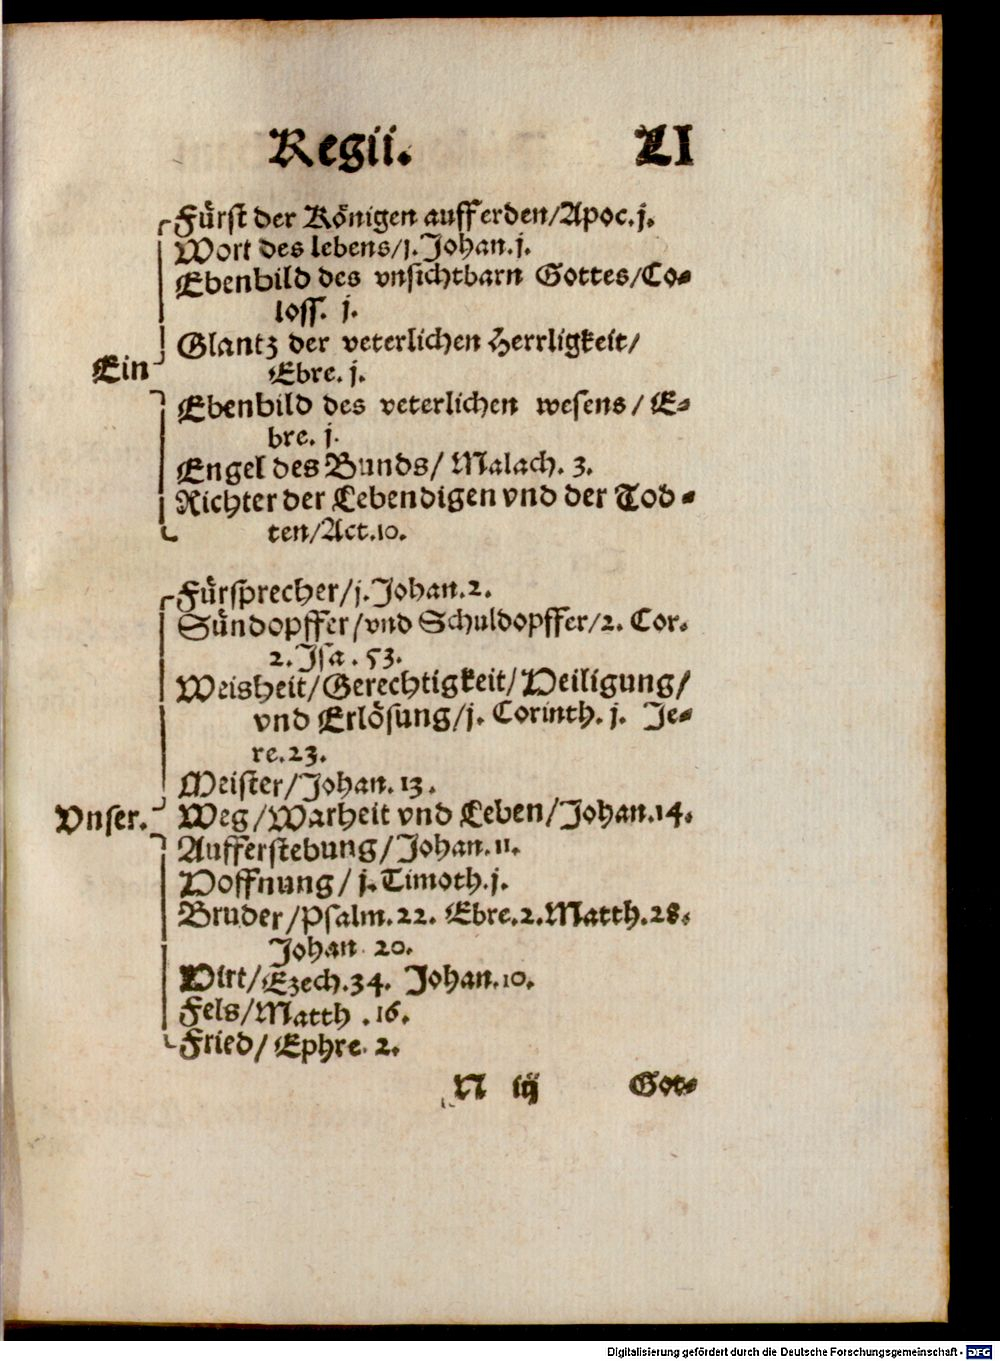 Regii. LI
Fürst der Königen auff erden/Apoc.j.
Wort des lebens/j.Johan.j.
Ebenbild des vnsichtbarn Gottes/Co-
loss. j.
Glantz der veterlichen Herrligkeit/
Ein
Ebre. j.
Ebenbild des veterlichen wesens/ E-
bre. j.
Engel des Bunds/ Malach. 3.
Richter der Lebendigen vnd der Tod-
ten/Act.10.
Fürsprecher/j.Johan.2.
Sündopffer/vnd Schuldopffer/2. Cor.
2.Jsa. 53.
Weisheit/Gerechtigkeit/Heiligung/
vnd Erlösung/j. Corinth. j. Je-
re.23.
Meister/Johan. 13.
Vnser. Weg/Warheit vnd Leben/Johan.14.
Aufferstebung/Johan.11.
Hoffnung/ j.Timoth.j.
Bruder/Psalm.22. Ebre.2.Matth.28.
Johan 20.
Hirt/Ezech.34. Johan.10.
Fels/Matth .16.
Fried/ Ephre. 2.
N iij Got-
Digitalisierung gefördert durch die Deutsche Forschungsgemeinschaft - DFG